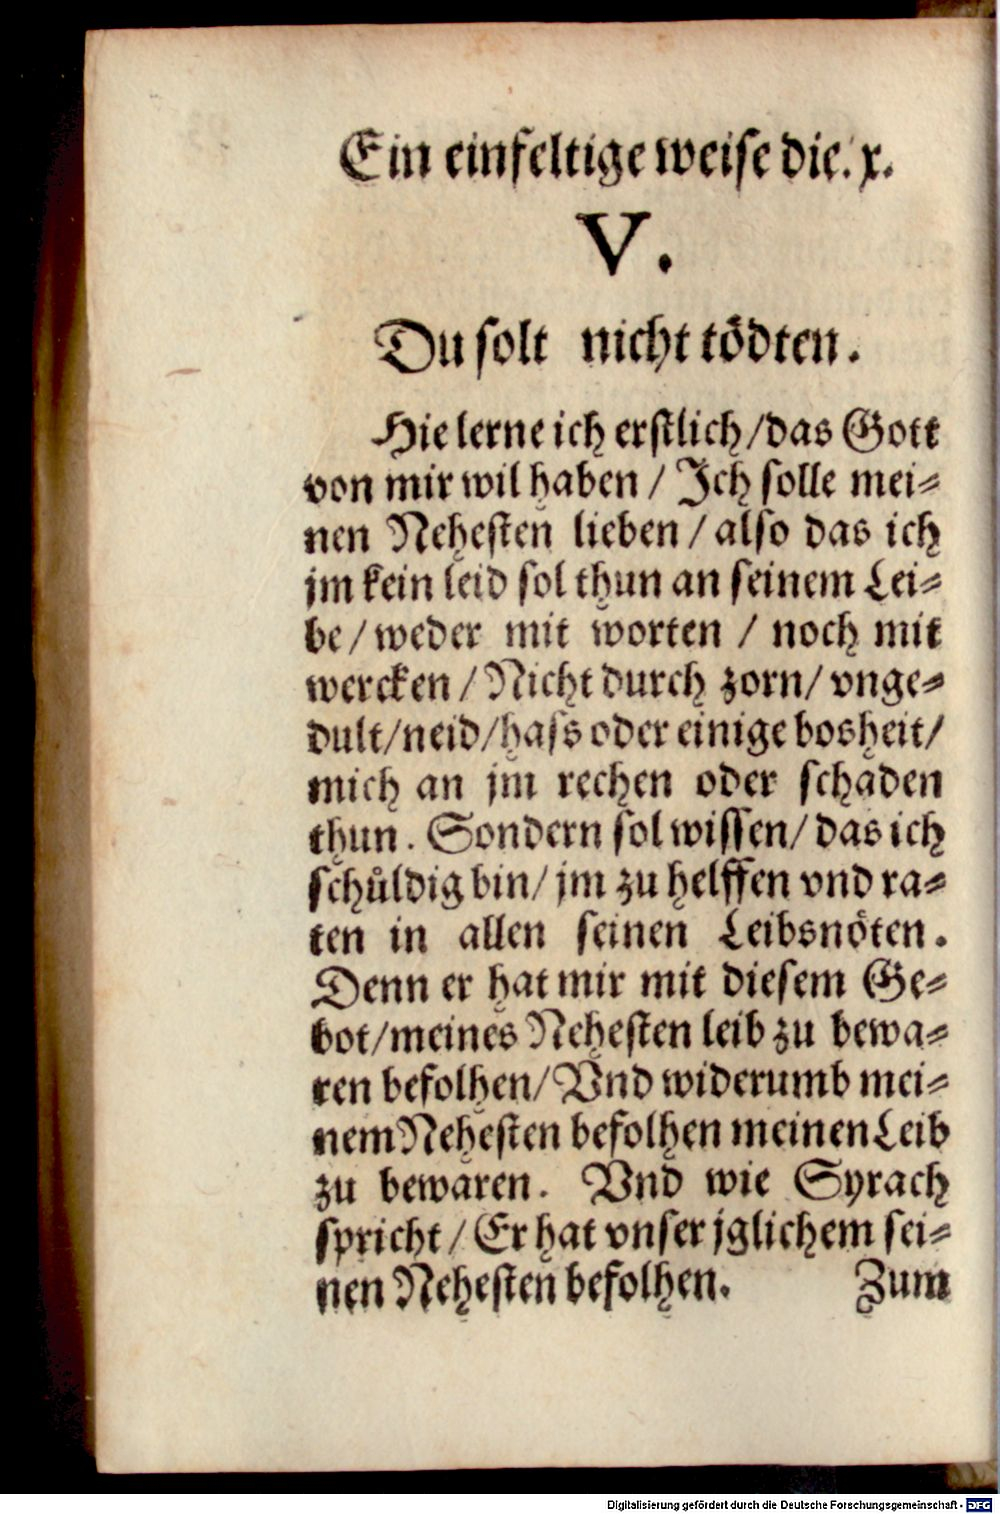 Ein einfeltige weise die. x.
V.
Du solt nicht tödten.
Hie lerne ich erstlich/das Gott
von mir wil haben / Ich solle mei⸗
nen Nehesten lieben / also das ich
jm kein leid sol thun an seinem Lei⸗
be / weder mit worten / noch mit
wercken / Nicht durch zorn/ vnge⸗
dult/neid/hass oder einige bosheit/
mich an jm rechen oder schaden
thun. Sondern sol wissen/ das ich
schůldig bin/ jm zu helffen vnd ra⸗
ten in allen seinen Leibsnöten.
Denn er hat mir mit diesem Ge⸗
bot/meines Nehesten leib zu bewa⸗
ren befolhen/ Vnd widerumb mei⸗
nem Nehesten befolhen meinen Leib
zu bewaren. Vnd wie Syrach
spricht / Er hat vnser jglichem sei⸗
nen Nehesten befolhen. Zum
Digitalisierung gefördert durch die Deutsche Forschungsgemeinschaft - DFG